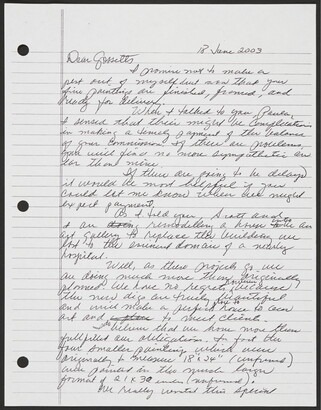 18 June 2003
Dear Gossetts
I promise not to make a
pest out of myself but now that your
fine paintings are finished, framed, and
ready for delivery.
When I talked to you, Paula,
I sensed that there might be complications
in making a timely payment of the balance
of your commission. If there are problems,
you will find no more sympathetic an
ear than mine.
If there are going to be delays
it would be most helpful if you
could let me know when we might
expect payment.
As I told you, Scott and I
are remodeling a house into an
art gallery to replace the building we
lost to the eminent domain of a nearby
hospital.
Well, as these projects go we
are doing much more than originally
planned. We have no regrets, because
the new digs are truly beautiful
and will make a perfect house to our
art and to meet clients.
I believe that we have more than
fulfilled our obligations. In fact the
four smaller paintings which were
originally to measure 18" x 24" (unframed)
were painted in the much larger
format of 21 x 30 inches (unframed).
We really wanted this special